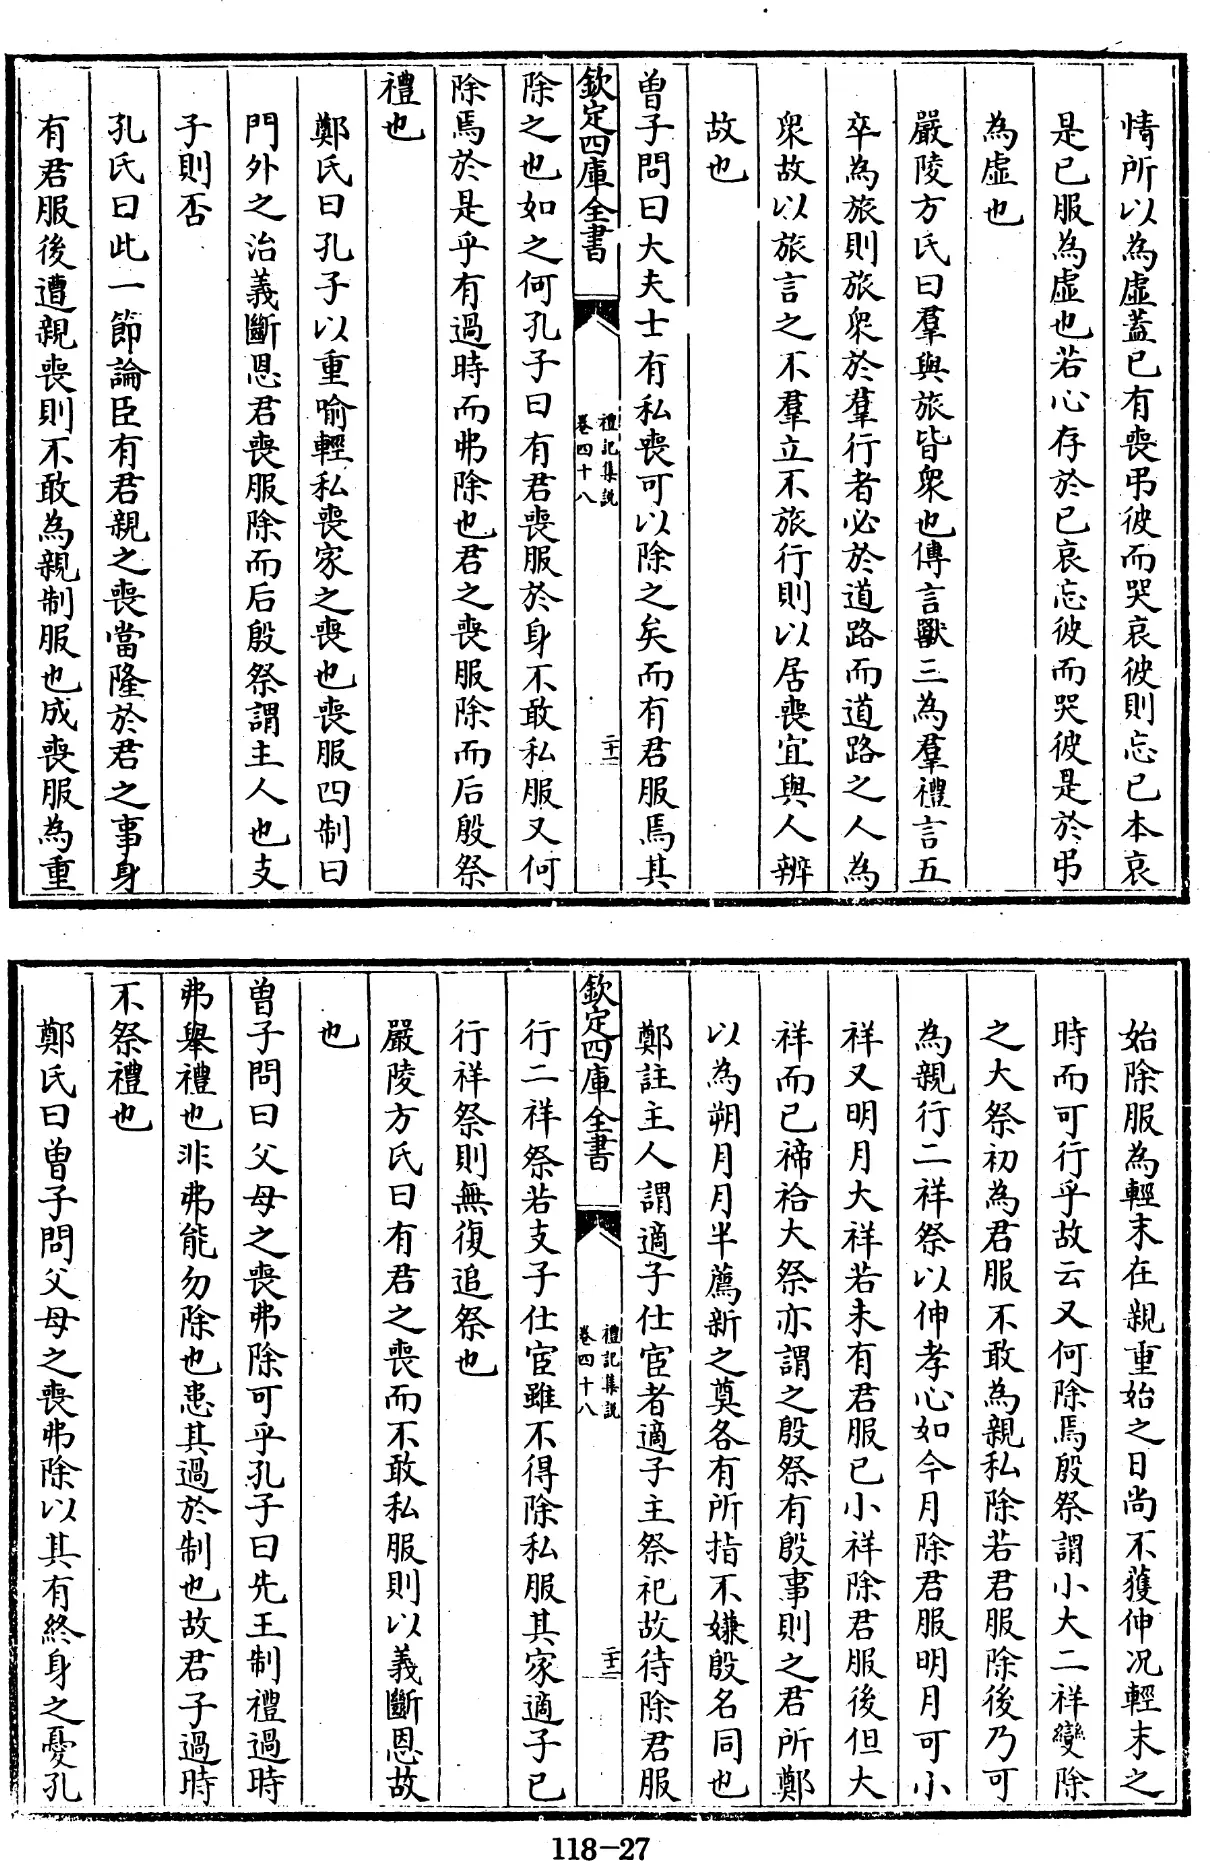 情所以為虛蓋已有喪弔彼而哭哀彼則忘已本哀
是已服為虛也若心存於已哀忘彼而哭彼是於弔
為虛也
嚴陵方氏曰羣與旅皆衆也傳言獸三為羣禮言五
卒為旅則旅衆於羣行者必於道路而道路之人為
衆故以旅言之不羣立不旅行則以居喪宜與人辨
故也
曽子問曰大夫士有私喪可以除之矣而有君服焉其
欽定四庫全書
禮記集說
卷四十八
二十一
除之也如之何孔子曰有君喪服於身不敢私服又何
除焉於是乎有過時而弗除也君之喪服除而后殷祭
禮也
鄭氏曰孔子以重喻輕私喪家之喪也喪服四制曰
門外之治義斷恩君喪服除而后殷祭謂主人也支
子則否
孔氏曰此一節論臣有君親之喪當隆於君之事身
有君服後遭親喪則不敢為親制服也成喪服為重
始除服為輕末在親重始之日尚不獲伸况輕末之
時而可行乎故云又何除焉殷祭謂小大二祥變除
之大祭初為君服不敢為親私除若君服除後乃可
為親行二祥祭以伸孝心如今月除君服明月可小
祥又明月大祥若未有君服已小祥除君服後但大
祥而已禘祫大祭亦謂之殷祭有殷事則之君所鄭
以為朔月月半薦新之奠各有所指不嫌殷名同也
鄭註主人謂適子仕宦者適子主祭祀故待除君服
欽定四庫全書
禮記集說
卷四十八
二十二
行二祥祭若支子仕宦雖不得除私服其家適子已
行祥祭則無復追祭也
嚴陵方氏曰有君之喪而不敢私服則以義斷恩故
也
曽子問曰父母之喪弗除可乎孔子曰先王制禮過時
弗舉禮也非弗能勿除也患其過於制也故君子過時
不祭禮也
鄭氏曰曽子問父母之喪弗除以其有終身之憂孔
118-27